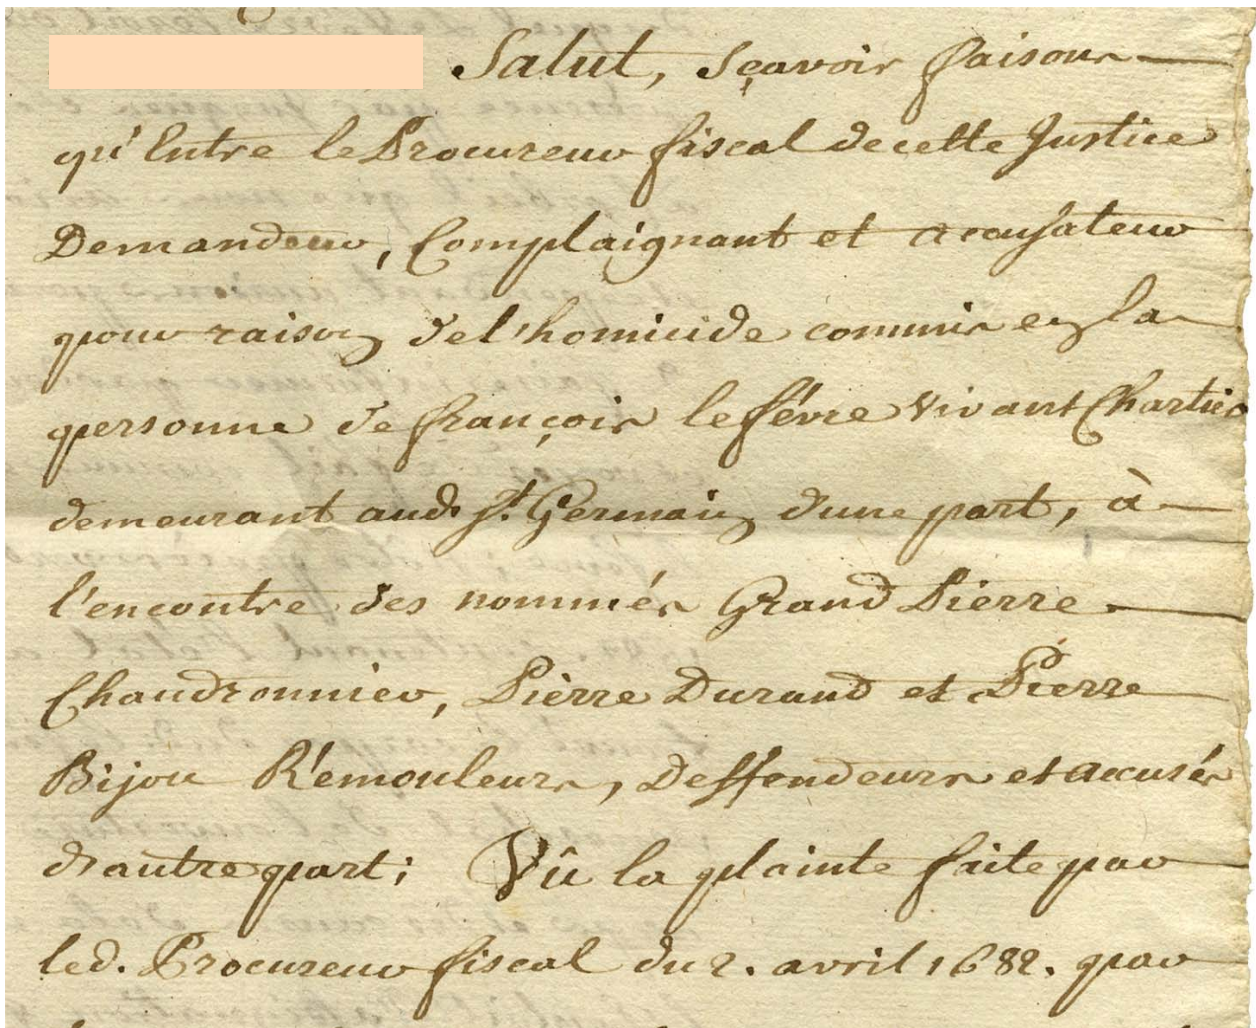 Salut, sçavoir faisons
qu'Entre le Procureur fiscal de cette Justice
Demandeur, Complaignant et accusateur
pour raison de l'homicide commis en la
personne de françois le févre vivant Chartier
demeurant aud. St. Germain d'une part, à
l'encontre des nommés Grand Pierre
Chaudronnier, Pierre Durand et Pierre
Bijou Rémouleurs, Deffendeurs et accusés
d'autre part; Vû la plainte faite par
led. Procureur fiscal du 2. avril 1682. par